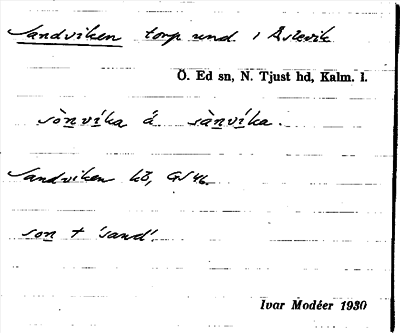 Sandviken torp und / Åslevik
Ö. Ed sn, N. Tjust hd, Kalm. l.
sònvíka å sànvíka.
Sandviken kb, GV 46.
son + 'sand'.
Ivar Modéer 1930